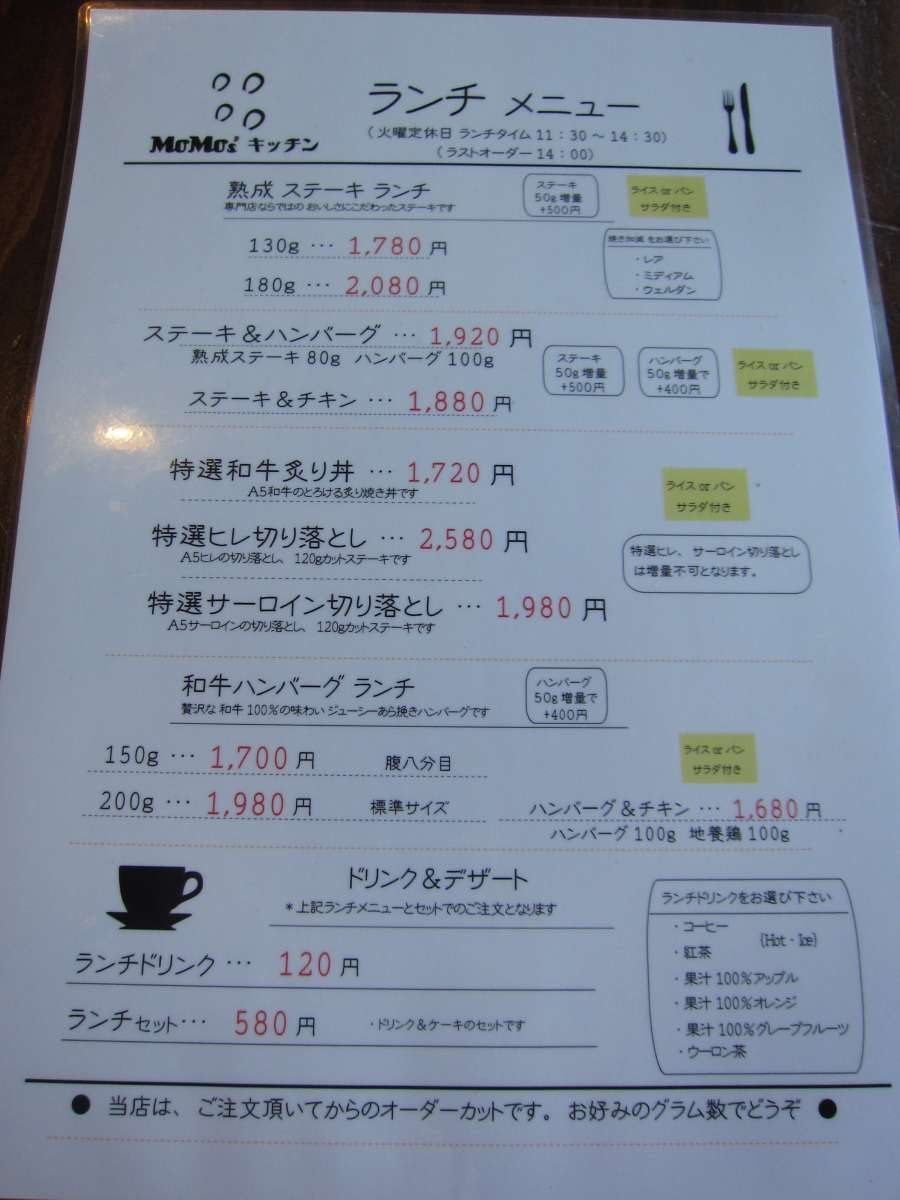 MoMo's キッチン
ランチ メニュー
(火曜定休日 ランチタイム 11：30～14：30)
(ラストオーダー 14：00)
熟成 ステーキ ランチ
専門店ならではの おいしさにこだわったステーキです
ステーキ
50g 増量
+500円
ライス or パン
サラダ付き
130g … 1,780 円
180g … 2,080 円
焼き加減 をお選び下さい
・レア
・ミディアム
・ウェルダン
ステーキ＆ハンバーグ … 1,920 円
熟成ステーキ 80g ハンバーグ 100g
ステーキ
50g 増量
+500円
ハンバーグ
50g 増量で
+400円
ライス or パン
サラダ付き
ステーキ＆チキン … 1,880 円
特選和牛炙り丼 … 1,720 円
A5和牛のとろける炙り焼き丼です
ライス or パン
サラダ付き
特選ヒレ切り落とし … 2,580 円
A5ヒレの切り落とし、120gカットステーキです
特選ヒレ、サーロイン切り落とし
は増量不可となります。
特選サーロイン切り落とし … 1,980 円
A5サーロインの切り落とし、120gカットステーキです
和牛ハンバーグ ランチ
贅沢な 和牛 100％の味わい ジューシーあら挽きハンバーグです
ハンバーグ
50g 増量で
+400円
150g … 1,700 円 腹八分目
200g … 1,980 円 標準サイズ
ライス or パン
サラダ付き
ハンバーグ＆チキン … 1,680 円
ハンバーグ 100g 地養鶏 100g
ドリンク＆デザート
＊上記ランチメニューとセットでのご注文となります
ランチドリンク … 120 円
ランチセット … 580 円 ・ドリンク＆ケーキのセットです
ランチドリンクをお選び下さい
・コーヒー
{Hot・Ice}
・紅茶
・果汁 100％アップル
・果汁 100％オレンジ
・果汁 100％グレープフルーツ
・ウーロン茶
● 当店は、ご注文頂いてからのオーダーカットです。お好みのグラム数でどうぞ ●